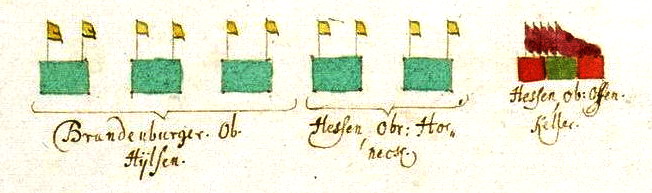 Brandenburger. Ob.
Hülsen.
Hessen obr: Hor„
neck.
Hessen ob: Offen.
Keller.